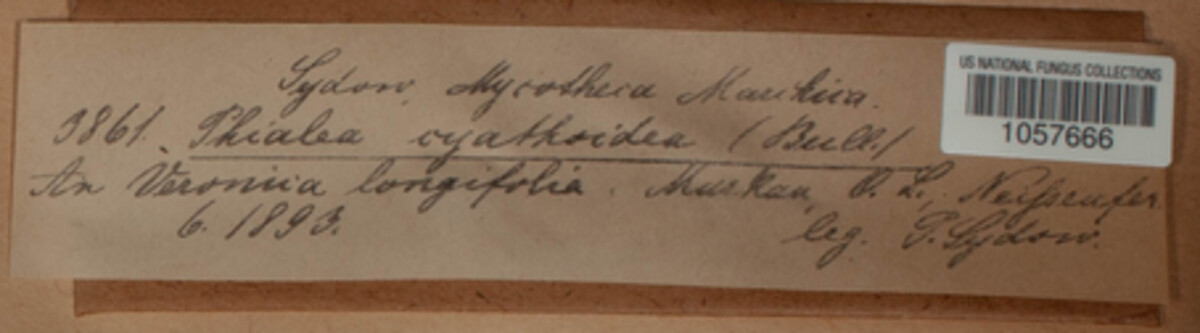 Sydow, Mycotheca Marchica.
3861. Phialea cyathoidea (Bull.)
An Veronica longifolia. Muskau, O. L., Neißeufer
6. 1893.
leg. P. Sydow.
US NATIONAL FUNGUS COLLECTIONS
1057666